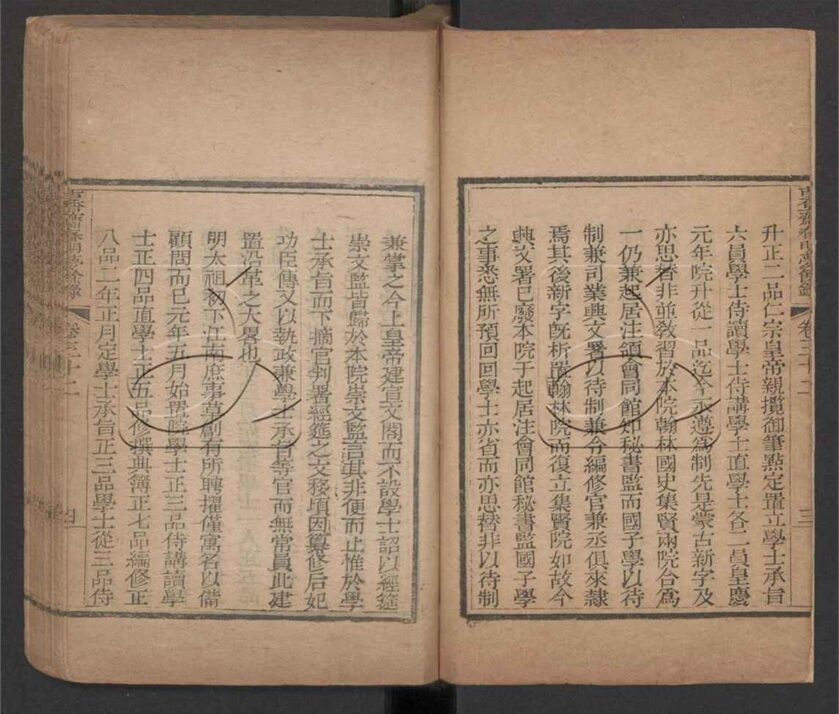 升正二品仁宗皇帝親攬御筆點定置立學士承旨
六員學士侍讀學士侍講學士直學士各二員皇慶
元年院升從一品迄今永遵為制先是蒙古新字及
亦思替非並教習於本院翰林國史集賢兩院合為
一仍兼起居注領會同館知秘書監而國子學以待
制兼司業興文署以待制兼令編修官兼丞俱來隸
焉其後新字既析置翰林院而復立集賢院如故今
興文署已廢本院于起居注會同館秘書監國子學
之事悉無所預回回學士亦省而亦思替非以待制
卷三十二
三
兼掌之今上皇帝建宣文閣而不設學士詔以經筵
崇文監皆歸於本院崇文監言其非便而止惟於學
士承旨而下摘官判署經筵之文移頃因纂修后妃
功臣傳又以執政兼學士承旨等官而無常員此建
置沿革之大畧也
明太祖初下江南庶事草創有所聘擢僅寓名以備
顧問而已元年五月始置院學士正三品侍講讀學
士正四品直學士正五品修撰典簿正七品編修正
八品二年正月定學士承旨正三品學士從三品侍
卷三十二
四